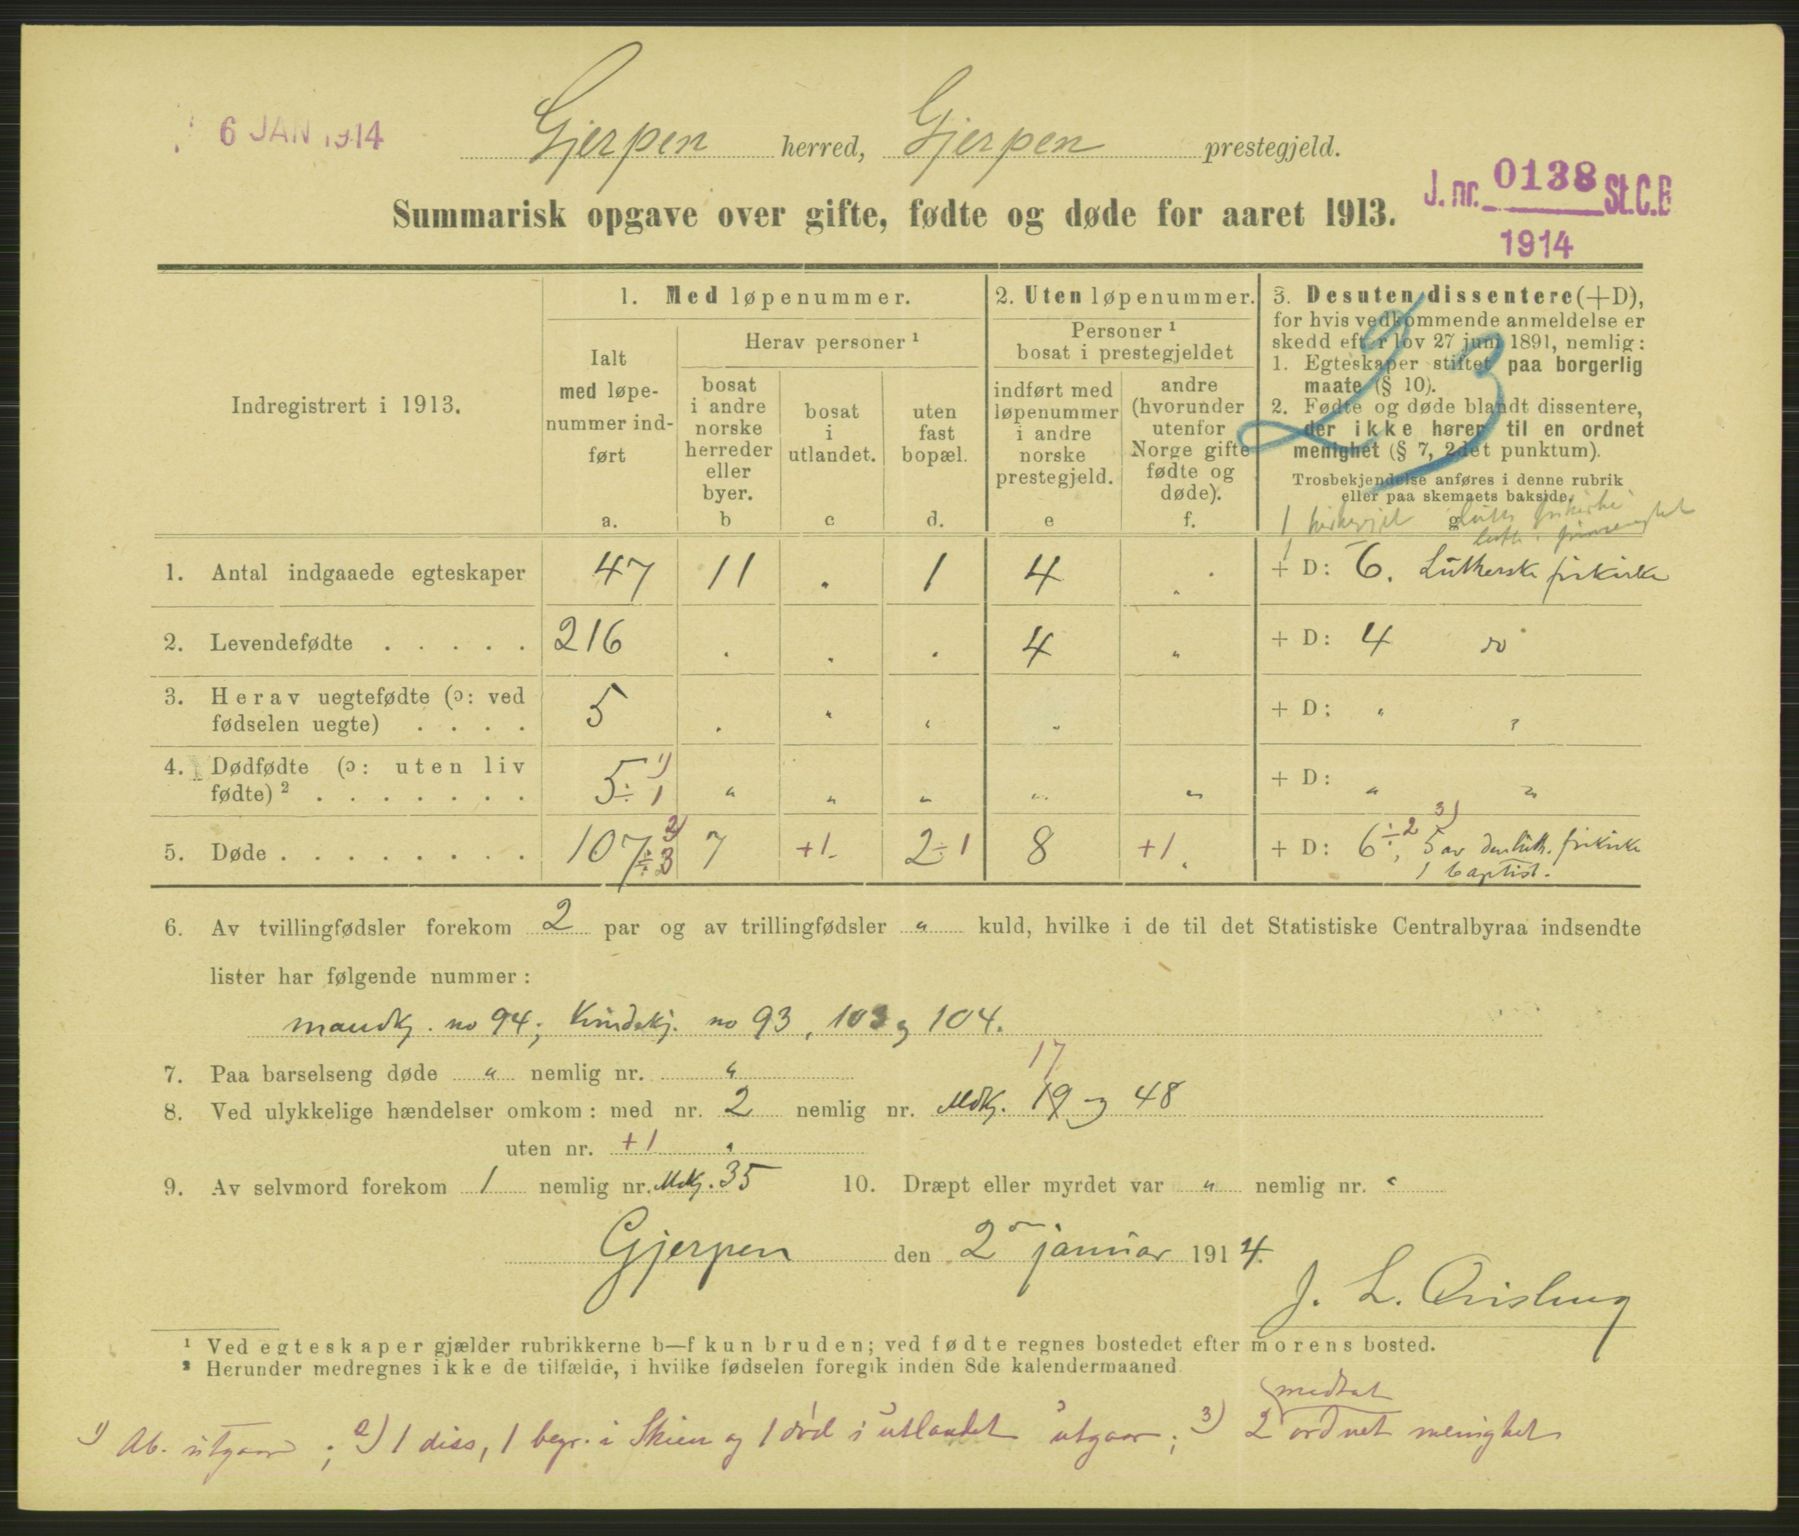 6 JAN 1914
Gjerpen herred, Gjerpen prestegjeld.
J. nr. 0138 St.C.B
1914
Summarisk opgave over gifte, fødte og døde for aaret 1913.
Indregistrert i 1913.
1. Med løpenummer.
Ialt
med løpe-
nummer ind-
ført
a.
Herav personer ¹
bosat
i andre
norske
herreder
eller
byer.
b
bosat
i
utlandet.
c
uten
fast
bopæl.
d.
2. Uten løpenummer.
Personer ¹
bosat i prestegjeldet
indført med
løpenummer
i andre
norske
prestegjeld.
e
andre
(hvorunder
utenfor
Norge gifte
fødte og
døde).
f.
3. Desuten dissentere (+D),
for hvis vedkommende anmeldelse er
skedd efter lov 27 juni 1891, nemlig:
1. Egteskaper stiftet paa borgerlig
maate (§ 10).
2. Fødte og døde blandt dissentere,
der ikke hører til en ordnet
menighet (§ 7, 2det punktum).
Trosbekjendelse anføres i denne rubrik
eller paa skemaets bakside.
g
23
1. Antal indgaaede egteskaper 47 11 . 1 4 „ + D: 6. Lutherske frikirke
2. Levendefødte . . . . . 216 . . . 4 „ + D: 4 do
3. Herav uegtefødte (ɔ: ved
fødselen uegte) . . . . 5 . „ „ „ + D: „ „
4. Dødfødte (ɔ: uten liv
fødte) ² . . . . . . . 5 ÷ 1 ¹) „ „ „ „ „ + D: „ „
5. Døde . . . . . . . . 107 ÷ 3 ²) 7 +1. 2 ÷ 1 8 +1. + D: 6 ÷ 2 ³), 5 av den luth. frikirke
1 baptist.
6. Av tvillingfødsler forekom 2 par og av trillingfødsler „ kuld, hvilke i de til det Statistiske Centralbyraa indsendte
lister har følgende nummer:
mandkj. no 94; Kvindekj. no 93, 103 og 104.
7. Paa barselseng døde „ nemlig nr. „
17
8. Ved ulykkelige hændelser omkom: med nr. 2 nemlig nr. Mdkj. 19 og 48
uten nr. +1 „
9. Av selvmord forekom 1 nemlig nr. Mdkj. 35 10. Dræpt eller myrdet var „ nemlig nr. „
Gjerpen den 2 januar 1914.
J. L. Qvisling
¹ Ved egteskaper gjælder rubrikkerne b—f kun bruden; ved fødte regnes bostedet efter morens bosted.
² Herunder medregnes ikke de tilfælde, i hvilke fødselen foregik inden 8de kalendermaaned
¹) Ab. utgaar; ²) 1 diss, 1 begr. i Skien og 1 død i utlandet utgaar; ³) 2 medtat ordnet menighet